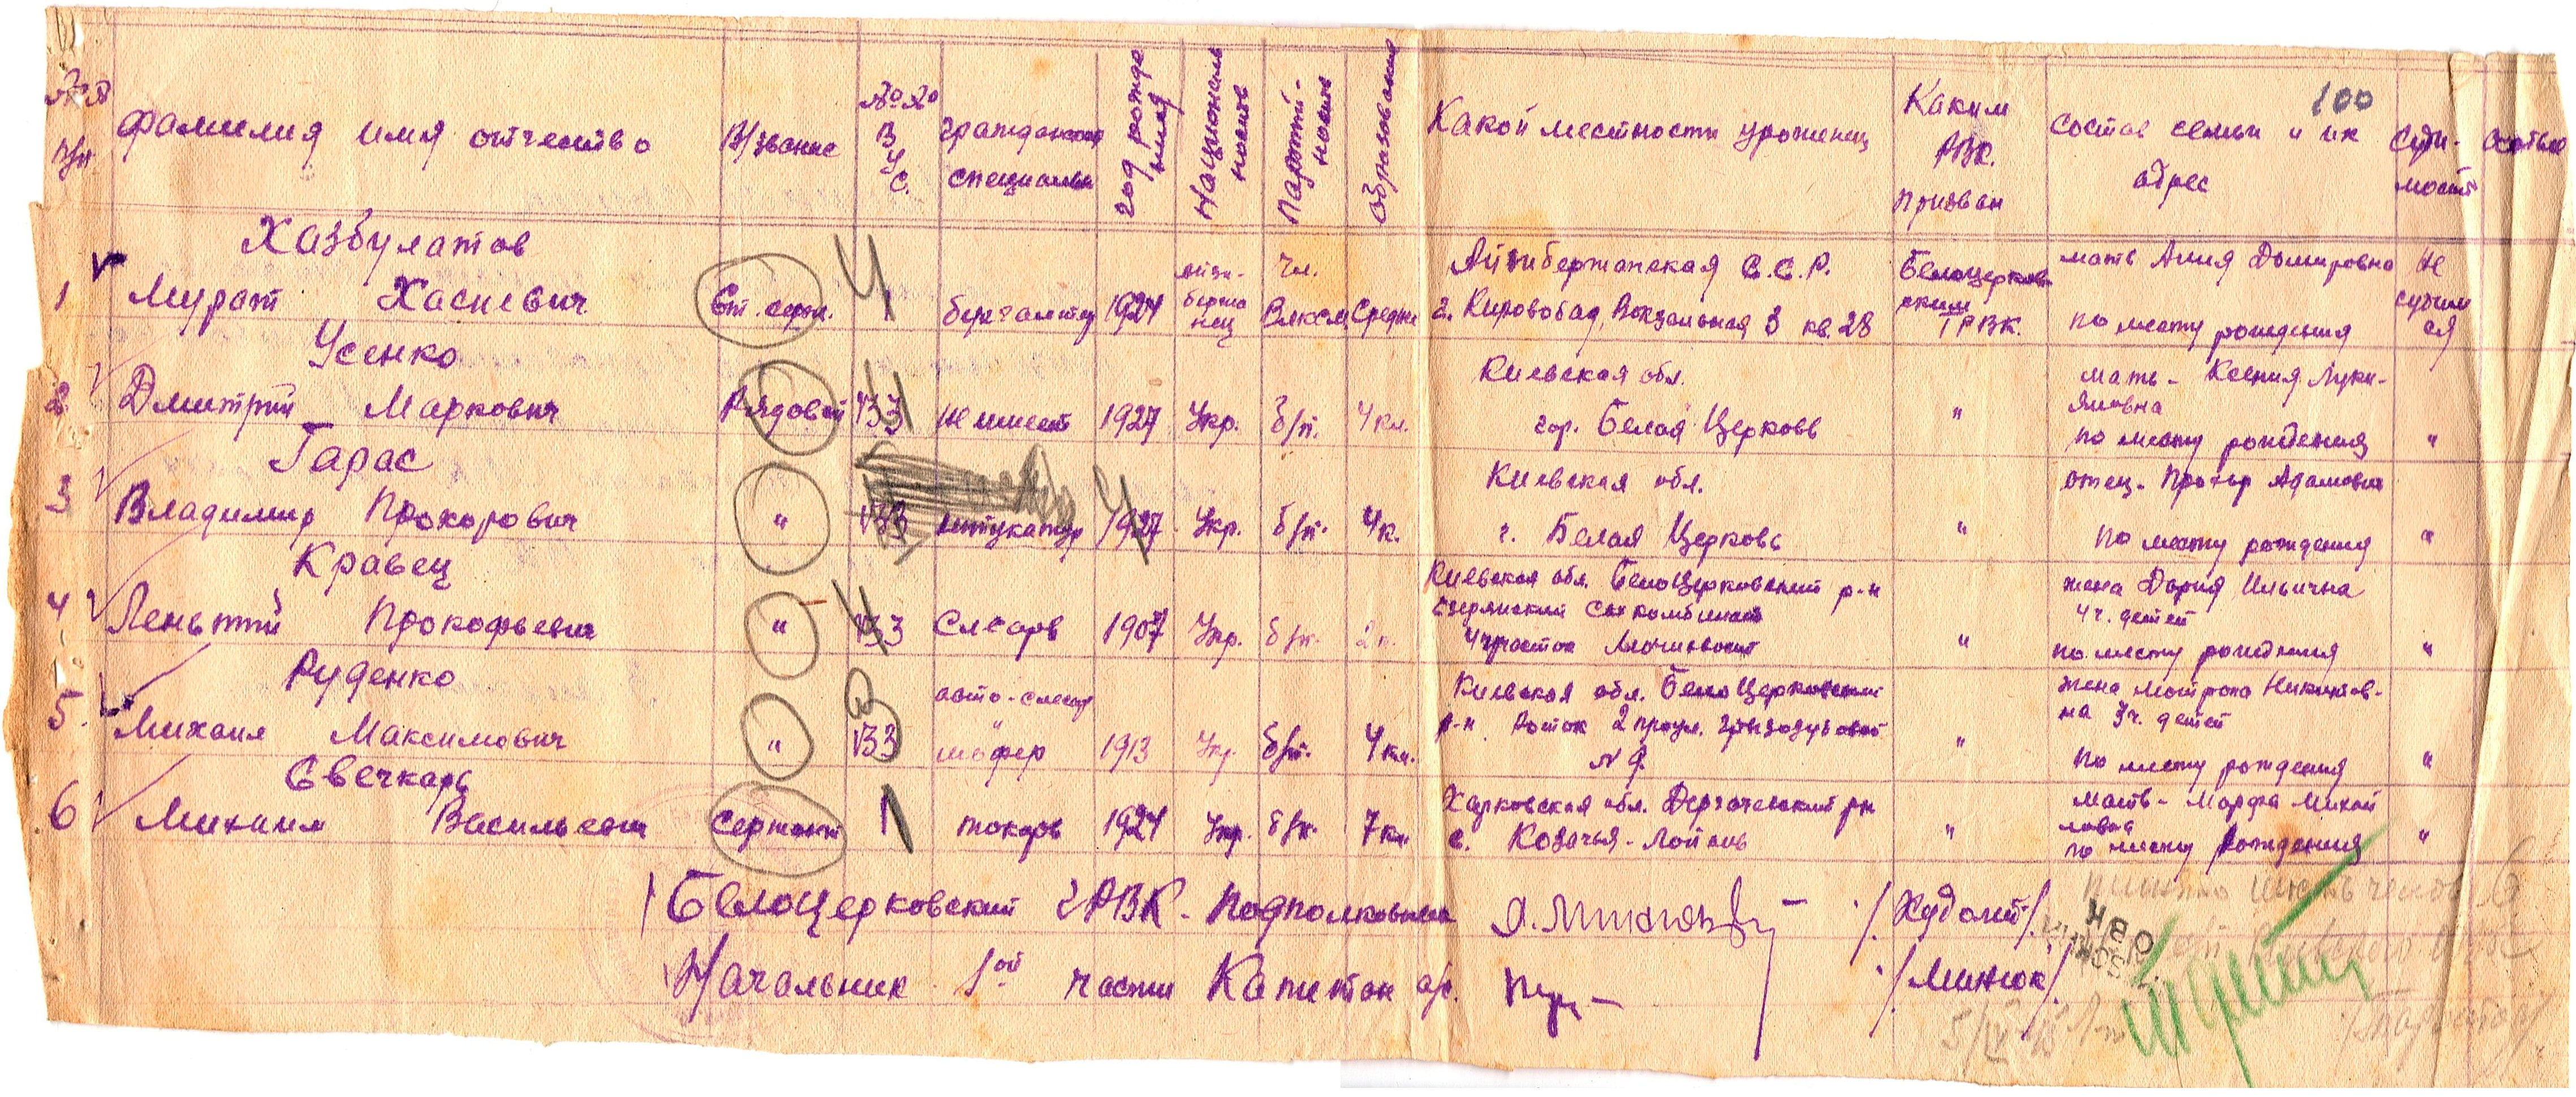 100
№№ п/п Фамилия имя отчество В/звание №№ В У С. гражданская специальн год рождения Национальность Партийность Образование Какой местности уроженец Каким РВК. призван состав семьи и их адрес Суди-мость
Хазбулатов
1 Мурат Ст. серж. 1 бухгалтер 1924 чл. Влксм Средне Азиибержанская С.С.Р.
г. Кировобад, Вокзальная 3 кв. 28 Белоцерковским ГРВК. мать
по месту рождения Не судим
Усенко
2 Дмитрий Маркович Рядовой 133 Не имеет 1927 Укр. б/п. 4 кл. Киевская обл.
гор. Белая Церковь " мать - Ксения Луки-
яновна
по месту рождения "
Гарас
3 Владимир Прохорович " 133 штукатур 1927 Укр. б/п. 4 к. Киевская обл.
г. Белая Церковь " отец - Прохор Адамович
по месту рождения "
Кравец
4 Прокофьевич " 133 Слесарь 1907 Укр. б/п. 2 к. Киевская обл. Белоцерковский р-н
" жена Дария Ильична
4 ч. детей
по месту рождения "
Руденко
5. Михаил Максимович " 133 авто-слесар
шофер 1913 Укр. б/п. 4 кл. Киевская обл. Белоцерковский
р-н Роток 2 проул.
№ 9. " жена Мотрона Никитов-
на 3 ч. детей
по месту рождения "
Свечкарь
6 Михаил Васильевич Сержант 1 токарь 1924 Укр. б/п. 7 кл. Харковская обл. Дергачевский рн
с. Козачья-Лопань " Мать - Марфа Михай
ловна
по месту рождения "
Белоцерковский ГРВК - Подполковник /.Худолий/.
Начальник 1ой части Капитан а/с. /.Минюк/.